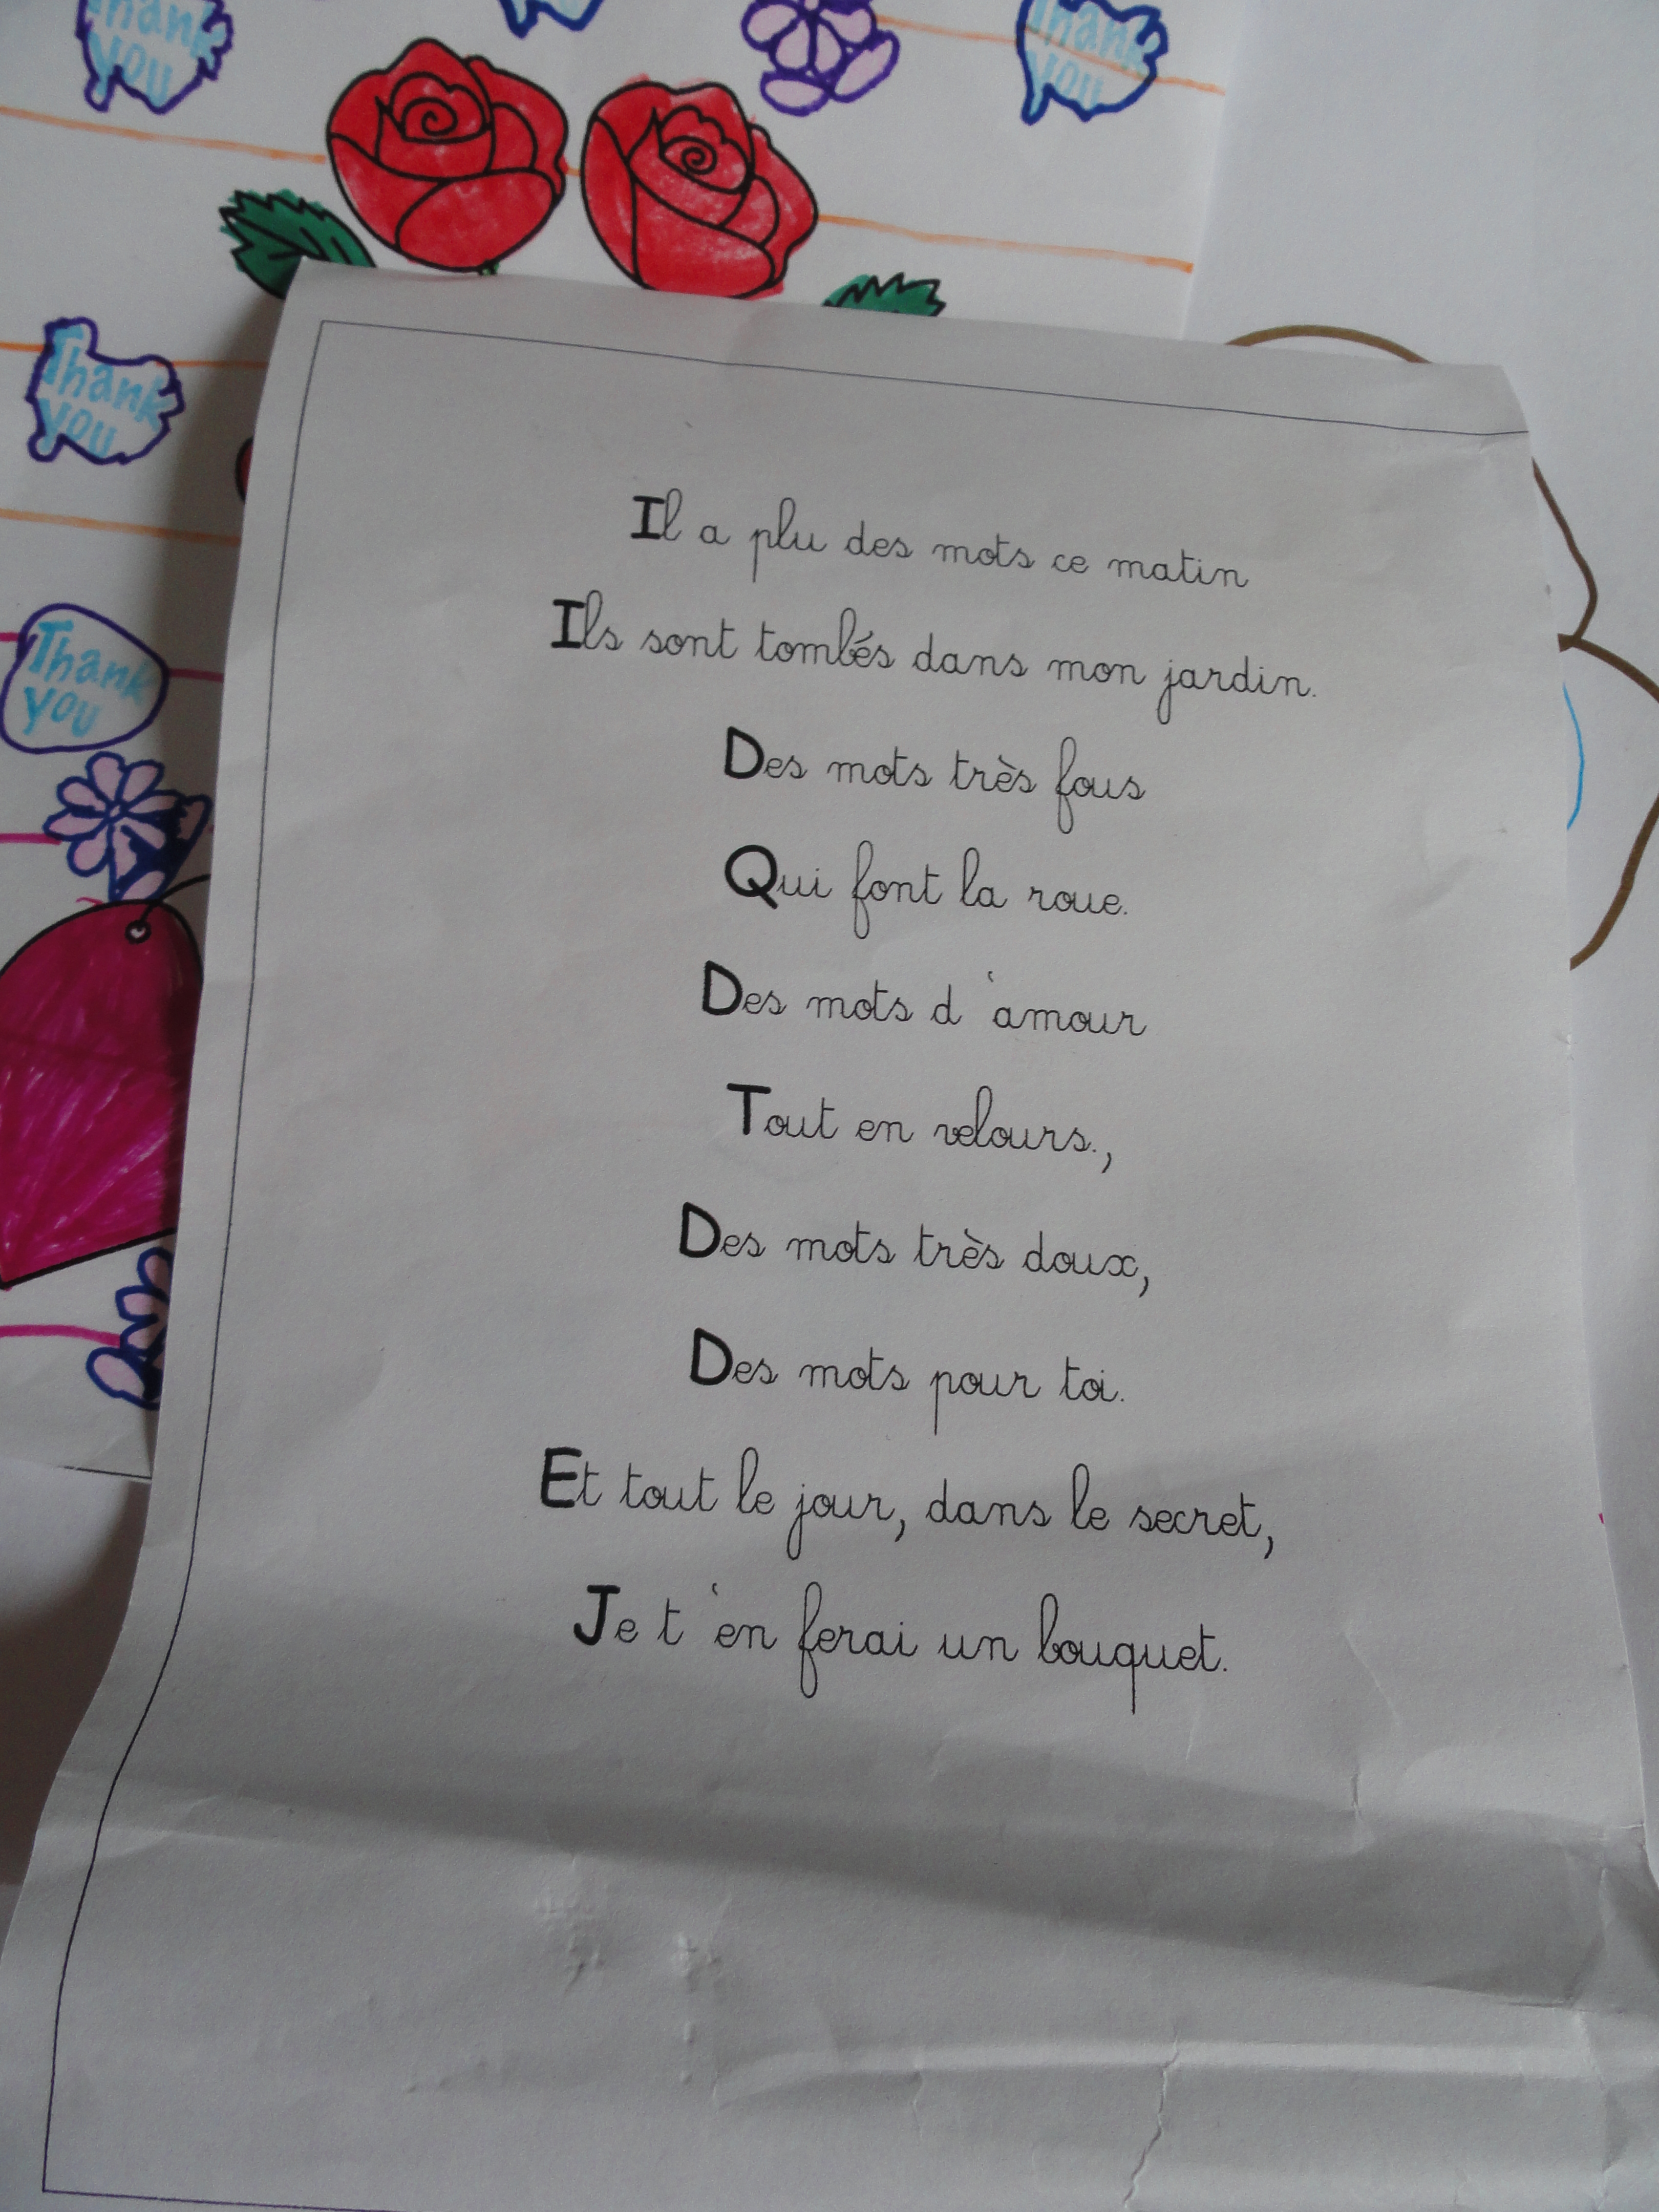 Thank
you
Thank
you
Thank
you
Thank
you
Il a plu des mots ce matin
Ils sont tombés dans mon jardin.
Des mots très fous
Qui font la roue.
Des mots d 'amour
Tout en velours.,
Des mots très doux,
Des mots pour toi.
Et tout le jour, dans le secret,
Je t 'en ferai un bouquet.